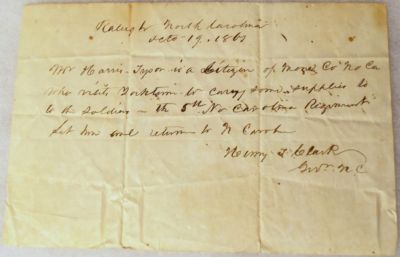 Raleigh North Carolina
Octo 19. 1861
Mr Harris Tyson is a Citizen of Moore Co No Ca
who visits Yorktown to carry some supplies to
to the soldiers in the 5th No Carolina Regiment
Let him and return to N Carol
Henry T Clark
Govr N C